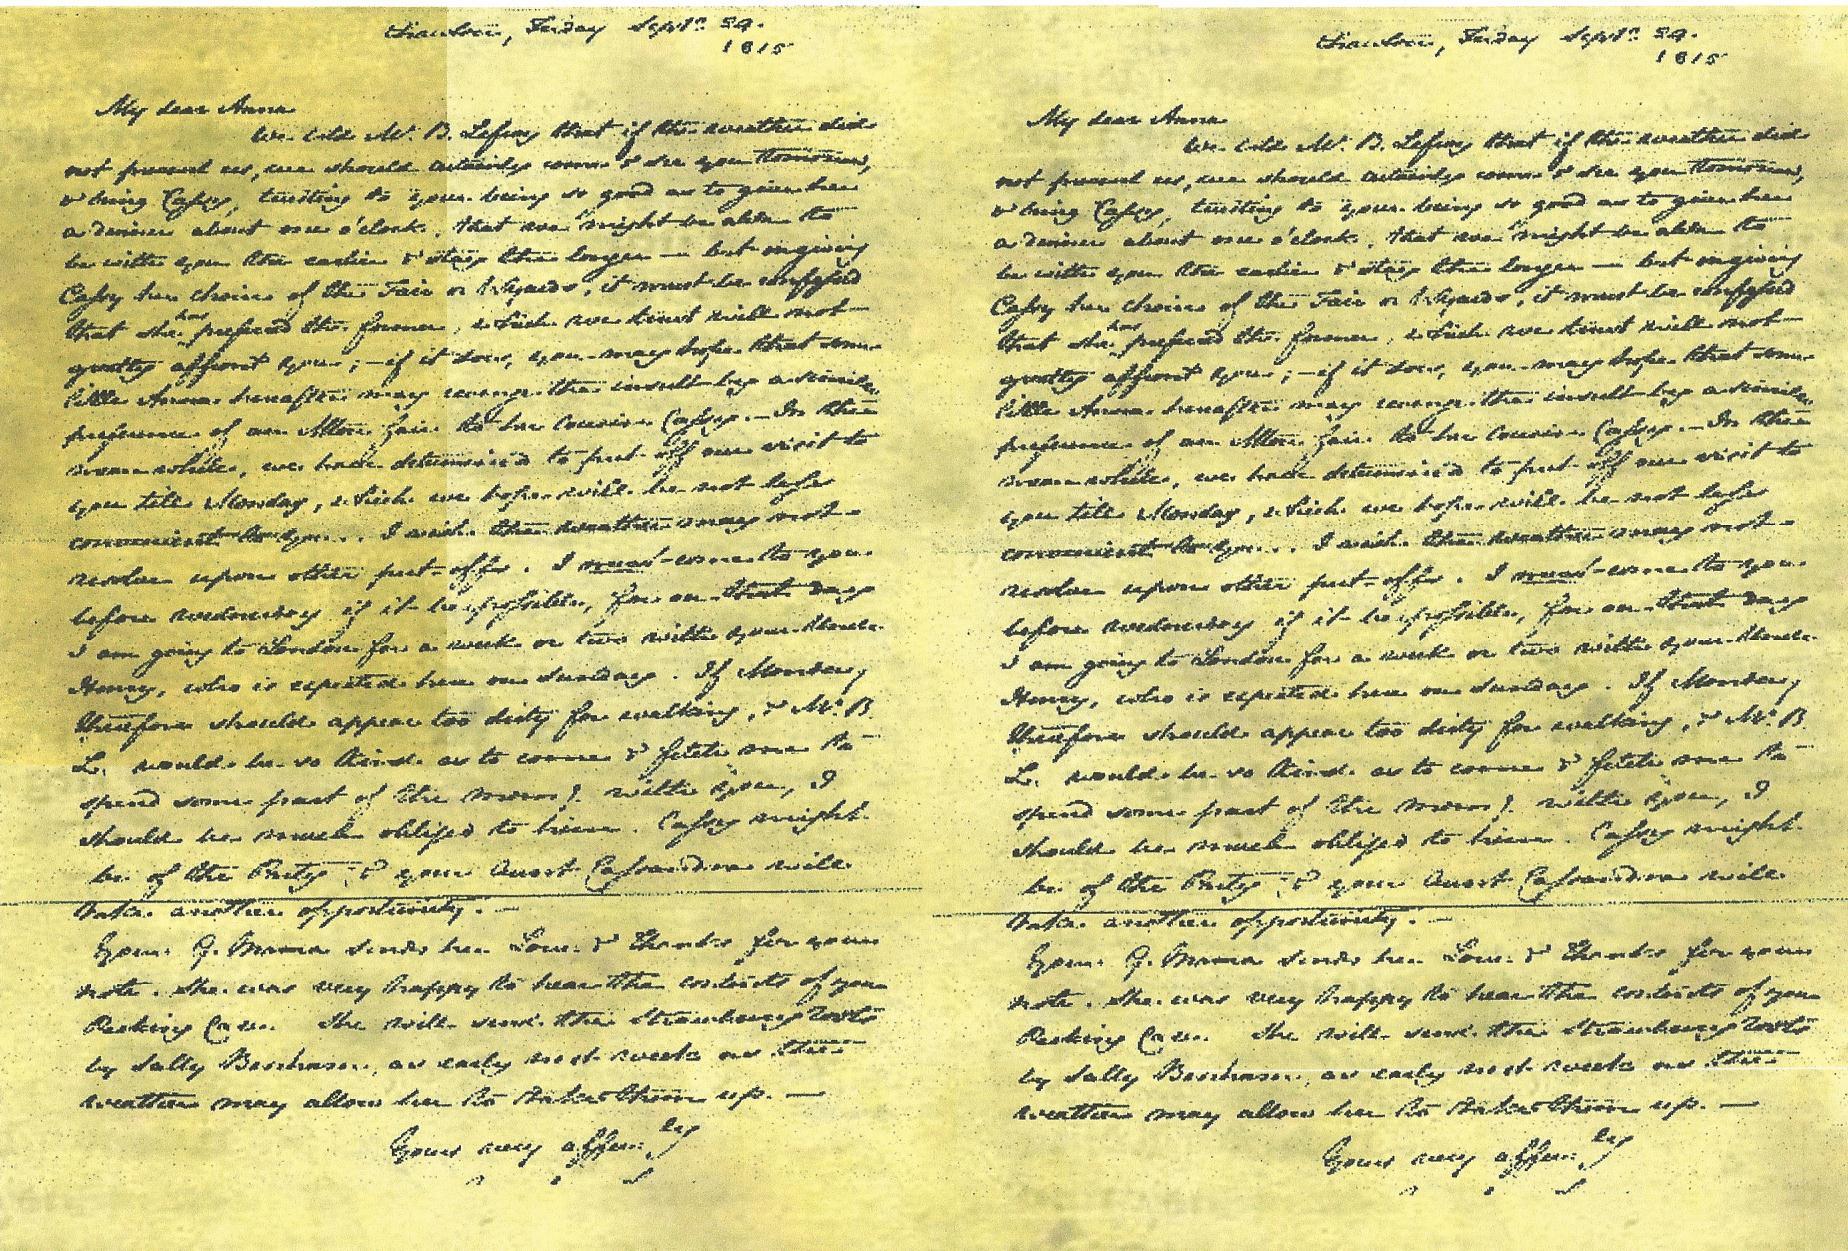 Chawton, Friday Septr. 29.
1815
My dear Anna
We told Mr. B. Lefroy that if the weather did
not prevent us, we should certainly come & see you tomorrow,
& bring Cassy, trusting to your being so good as to give her
a dinner about one o'clock, that we might be able to
be with you the earlier & stay the longer — but on giving
Cassy her choice of the Fair or Wyards, it must be confessed
that she has preferred the former, which we trust will not
greatly affront you; — if it does, you may hope that some
little Anna hereafter may revenge the insult by a similar
preference of an Alton fair to her Cousin Cassy. — In the
mean while, we have determined to put off our visit to
you till Monday, which we hope will be not less
convenient to You. . I wish the weather may not
resolve upon other put-offs. I must come to you
before wednesday if it be possible, for on that day
I am going to London for a week or two with your Uncle
Henry, who is expected here on Sunday. If Monday
therefore should appear too dirty for walking, & Mr. B.
L. would be so kind as to come & fetch me to
spend some part of the morng. with you, I
should be much obliged to him. Cassy might
be of the Party, & your Aunt Cassandra will
take another opportunity. —
Your G. Mama sends her Love & Thanks for your
note. She was very happy to hear the contents of your
Packing Case. She will send the Strawberry roots
by Sally Benham, as early next week as the
weather may allow her to take them up. —
Yours very affec:ly
Chawton, Friday Septr. 29.
1815
My dear Anna
We told Mr. B. Lefroy that if the weather did
not prevent us, we should certainly come & see you tomorrow,
& bring Cassy, trusting to your being so good as to give her
a dinner about one o'clock, that we might be able to
be with you the earlier & stay the longer — but on giving
Cassy her choice of the Fair or Wyards, it must be confessed
that she has preferred the former, which we trust will not
greatly affront you; — if it does, you may hope that some
little Anna hereafter may revenge the insult by a similar
preference of an Alton fair to her Cousin Cassy. — In the
mean while, we have determined to put off our visit to
you till Monday, which we hope will be not less
convenient to You. . I wish the weather may not
resolve upon other put-offs. I must come to you
before wednesday if it be possible, for on that day
I am going to London for a week or two with your Uncle
Henry, who is expected here on Sunday. If Monday
therefore should appear too dirty for walking, & Mr. B.
L. would be so kind as to come & fetch me to
spend some part of the morng. with you, I
should be much obliged to him. Cassy might
be of the Party, & your Aunt Cassandra will
take another opportunity. —
Your G. Mama sends her Love & Thanks for your
note. She was very happy to hear the contents of your
Packing Case. She will send the Strawberry roots
by Sally Benham, as early next week as the
weather may allow her to take them up. —
Yours very affec:ly